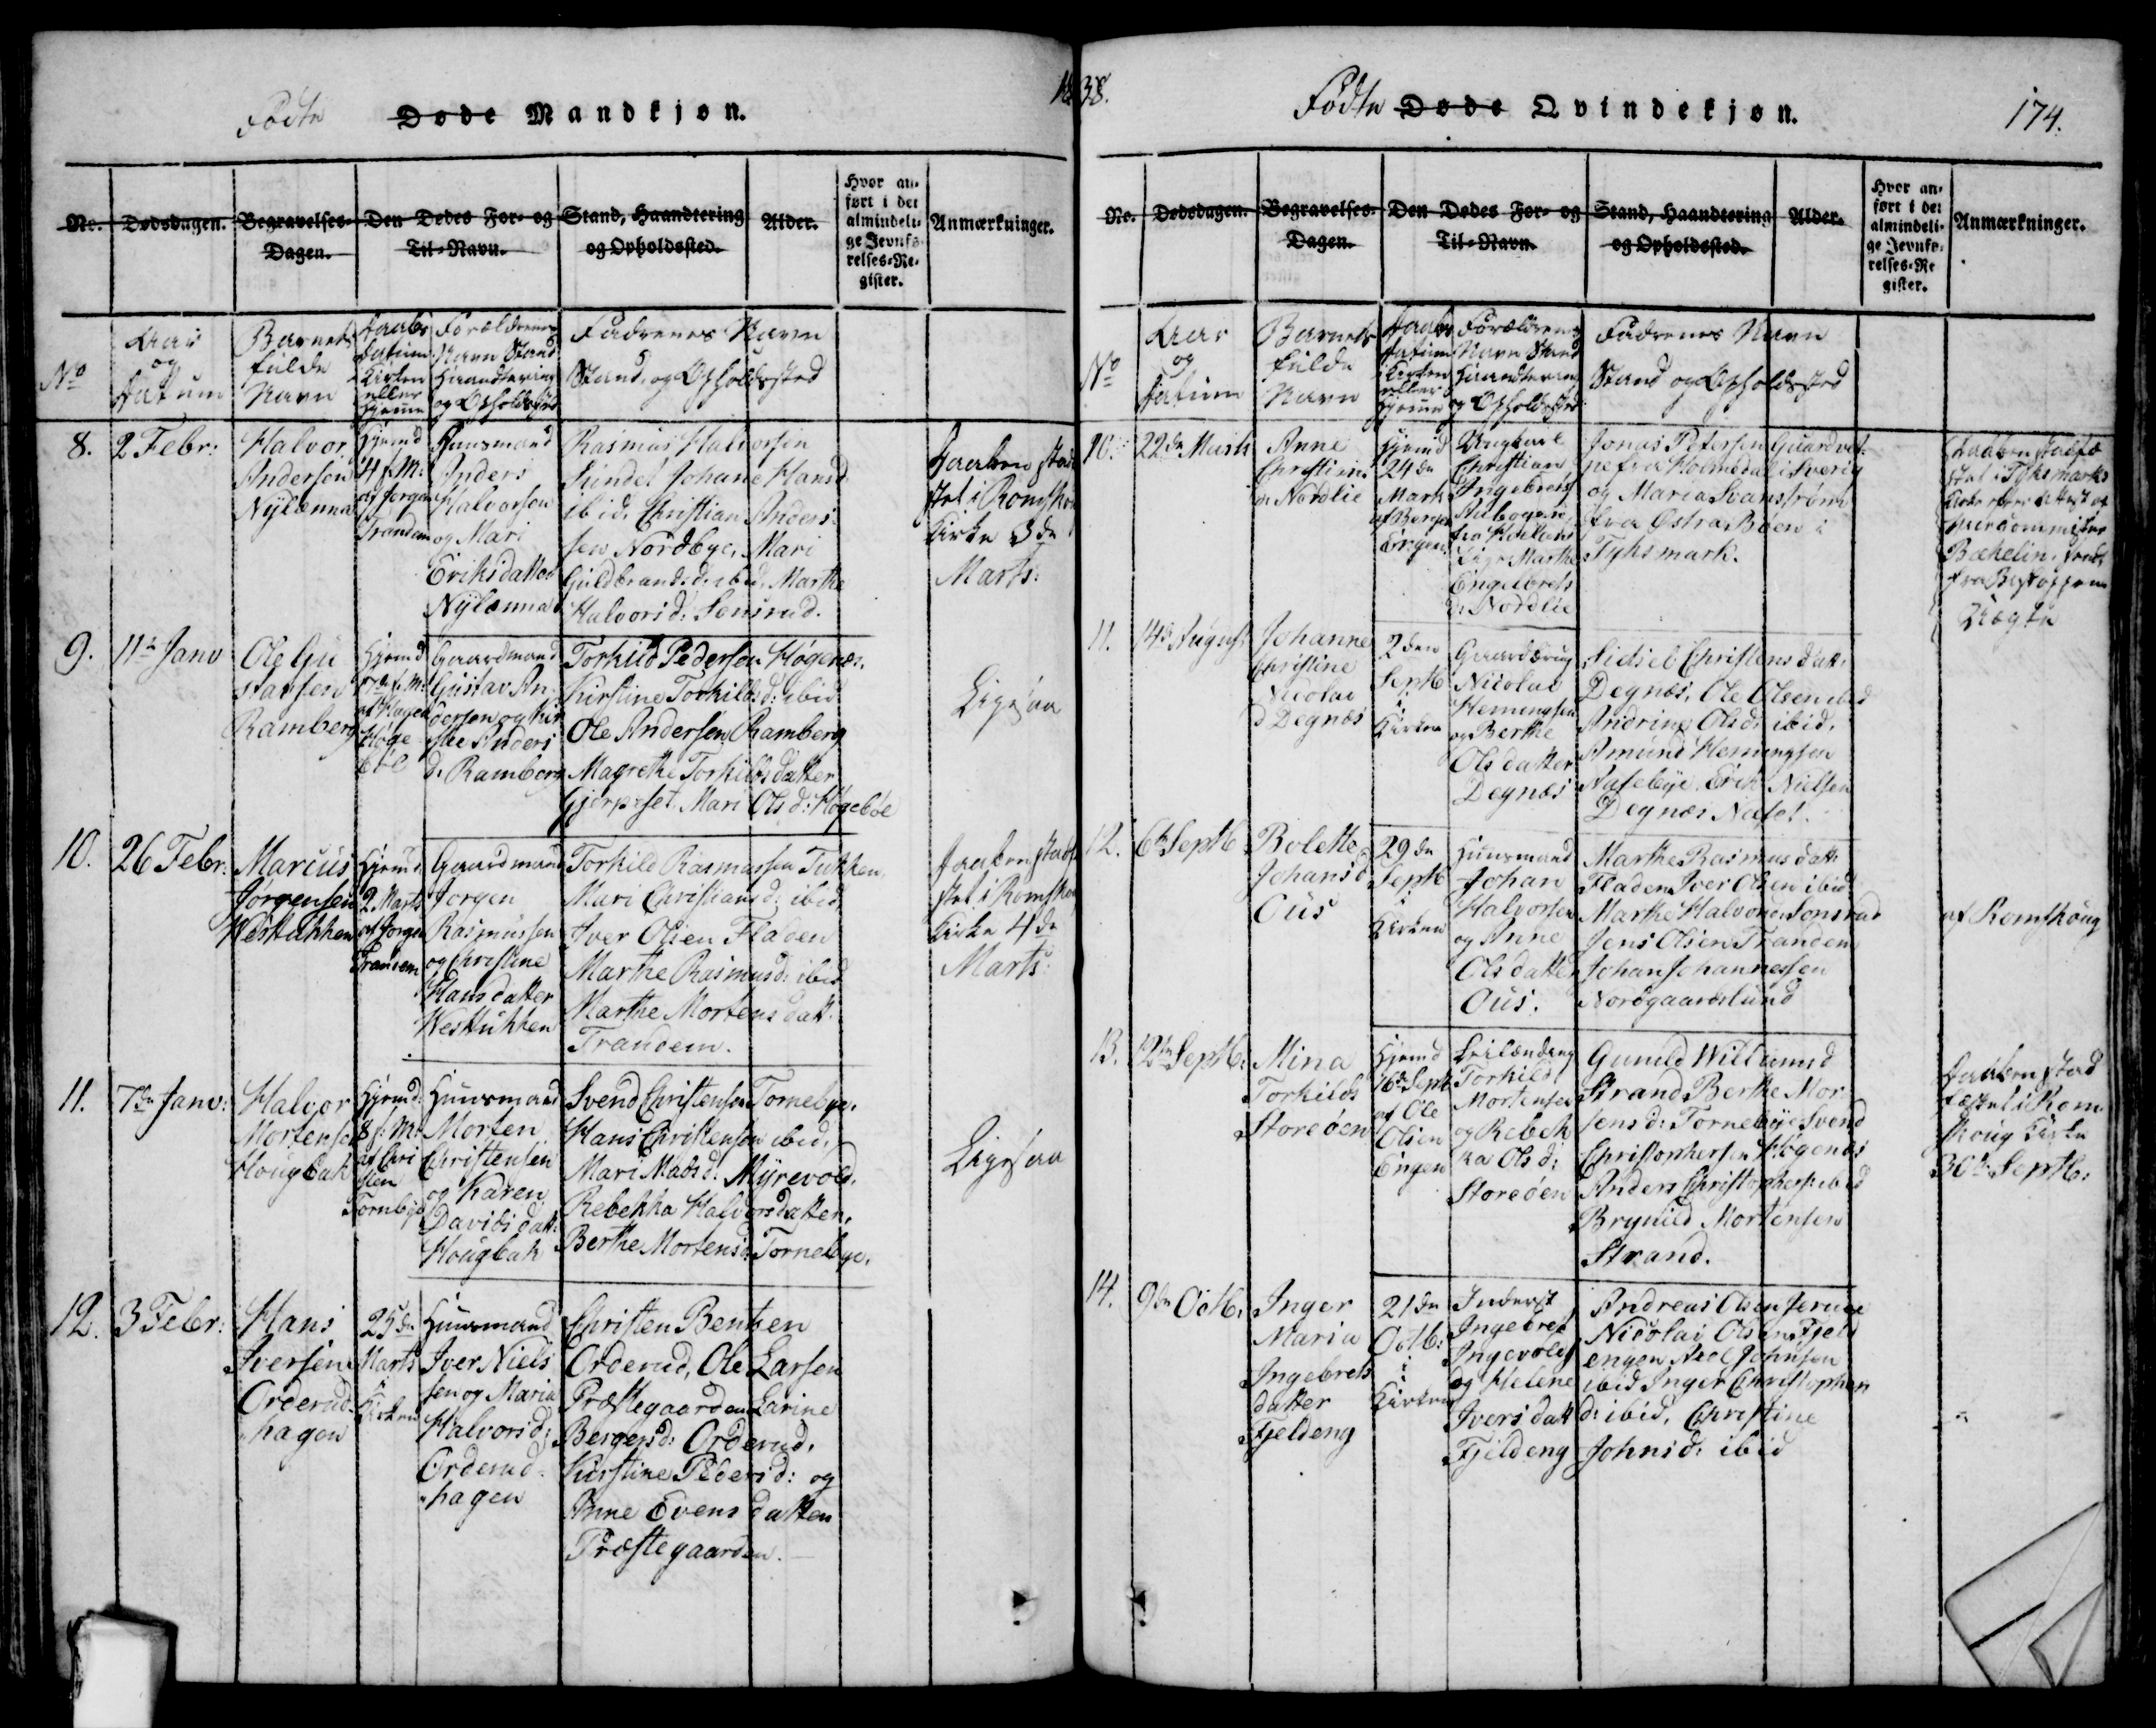 1838.
Fødte Døde Mandkjøn.
No.
Dødsdagen.
Begravelses-
Dagen.
Den Dødes For- og
Til-Navn.
Stand, Haandtering
og Opholdssted.
Alder.
Hvor an-
ført i det
almindeli-
ge Jevnfø-
relses-Re-
gister.
Anmærkninger.
No
Aar
og
Datum
Barnets
fulde
Navn
Daabs
Datum
i Kirken
eller
Hjemme
Forældrenes
Navn Stand
Haandtering
og Opholdssted
Fadrenes Navn
Stand og Opholdssted
8.
2 Febr:
Halvor
Andersen
Nylænna
Hjemd
4 f. M:
af Jørgen
Trandem
Huusmand
Anders
Halvorsen
og Mari
Eriksdatter
Nylænna
Rasmus Halvorsen
Sundet Johane Hansd
ibid. Christian Anders
sen Nordbye, Mari
Guldbrandsd. ibid. Marthe
Halvorsd: Sonsrud.
Daaben stad
fæstet i Romskou
Kirke 3de
Marts:
9.
11te Janv
Ole Gu
stavsen
Ramberg
Hjemd
17de f. M:
af Hagen
Høge
bøl
Gaardmand
Gustav An
dersen og Kir
stie Anders
d. Ramberg
Torkild Pedersen Høgenæs,
Kirstine Torkildsd: ibid
Ole Andersen Ramberg
Magrethe Torkildsdatter
Gjerpeset Mari Olsd: Høgebøl
Ligesaa
10.
26 Febr:
Marcus
Jørgensen
Westukken
Hjemd
2 Marts
af Jørgen
Trandem
Gaardmand
Jørgen
Rasmussen
og Christine
Hansdatter
Westukken
Torkild Rasmussen Tukken,
Mari Christiansd: ibid,
Iver Olsen Fladen
Marthe Rasmusd: ibid
Marthe Mortensdatt.
Trandem.
Daaben stadf
stet i Romskou
Kirke 4de
Marts:
11.
7de Janv:
Halvor
Mortensen
Hougbak
Hjemd:
8 f. M:
af Chri
sten
Tornbye
Huusmand
Morten
Christensen
og Karen
Davidsdatt:
Hougbak
Svend Christensen Tornebye,
Hans Christensen ibid,
Mari Madsd: Myrevold,
Rebekka Halvorsdatter,
Berthe Mortensd: Tornebye.
Ligesaa
12.
3 Febr:
Hans
Iversen
Orderud-
hagen
25de
Marts
i
Kirken
Huusmand
Iver Niels
sen og Maria
Halvorsd:
Orderud-
hagen
Christen Bentsen
Orderud, Ole Larsen
Præstegaarden Larine
Bergersd: Orderud,
Kirstine Pedersd: og
Anne Evensdatter
Præstegaarden.
Fødte Døde Qvindekjøn.
174.
No.
Dødsdagen.
Begravelses-
Dagen.
Den Dødes For- og
Til-Navn.
Stand, Haandtering
og Opholdssted.
Alder.
Hvor an-
ført i det
almindeli-
ge Jevnfø-
relses-Re
gister.
Anmærkninger.
No
Aar
og
Datum
Barnets
fulde
Navn
Daabs
Datum
i Kirken
eller
Hjemme
Forældrenes
Navn Stand
Haandtering
og Opholdssted
Fadrenes Navn
Stand og Opholdssted
10.
22de Marts
Anne
Christians
d. Nordlie
Hjemd
24de
Marts
af Berger
Engen
Ungkarl
Christian
Ingebrets
Marthe
Engelbrets
d. Nordlie
Jonas Petersen Guardvet
ne fra Holmedal i Sverig
og Maria Svanstrøm
fra Østra Boen i
Tyksmark.
Daaben stadfæ
stet i Tyksmarks
Kirke
Bækelin
11.
14de August
Johanne
Christine
Nicolai
d Degnæs
2den
Septb
i
Kirken
Gaardbrug
Nicolai
Hemingsen
og Berthe
Olsdatter
Degnæs
Sidsel Christensdatt.
Degnæs, Ole Olsen ibid
Andrine Olsd: ibid,
Amund Hemingsen
Aasebye, Erik Nielsen
Degnæs Næset.
12.
6te Septb
Bolette
Johansd
Ous
29de
Septb
i
Kirken
Huusmand
Johan
Halvorsen
og Anne
Olsdatter
Ous.
Marthe Rasmusdatt
Fladen Iver Olsen ibid
Marthe Halvorsd: Sonsrud
Jens Olsen Trandem
Johan Johannessen
Nordgaardslund
af Romskoug
13.
12te Septb:
Mina
Torkilds
Storeøen
Hjemd
16de Septb
af Ole
Olsen
Engen
Leilænding
Torkild
Mortensen
og Rebek
ka Olsd:
Storeøen
Gunild Williumsd
Strand Berthe Mor
tensd: Tornebye Svend
Christophersen Høgenæs
Anders Christophers: ibid
Brynild Mortensen
Strand.
Daaben stad
fæstet i Rom
skoug Kirke
30te Septb:
14.
9de Octb:
Inger
Maria
Ingebrets
datter
Fjeldeng
21de
Octb:
i
Kirken
Inderst
Ingebret
Ingevolds
og Helene
Iversdatt
Fjeldeng
Andreas Olsen
Nicolai Olsen Fjeld
engen Axel Johnsen
ibid Inger Christophers
d: ibid, Christine
Johnsd: ibid